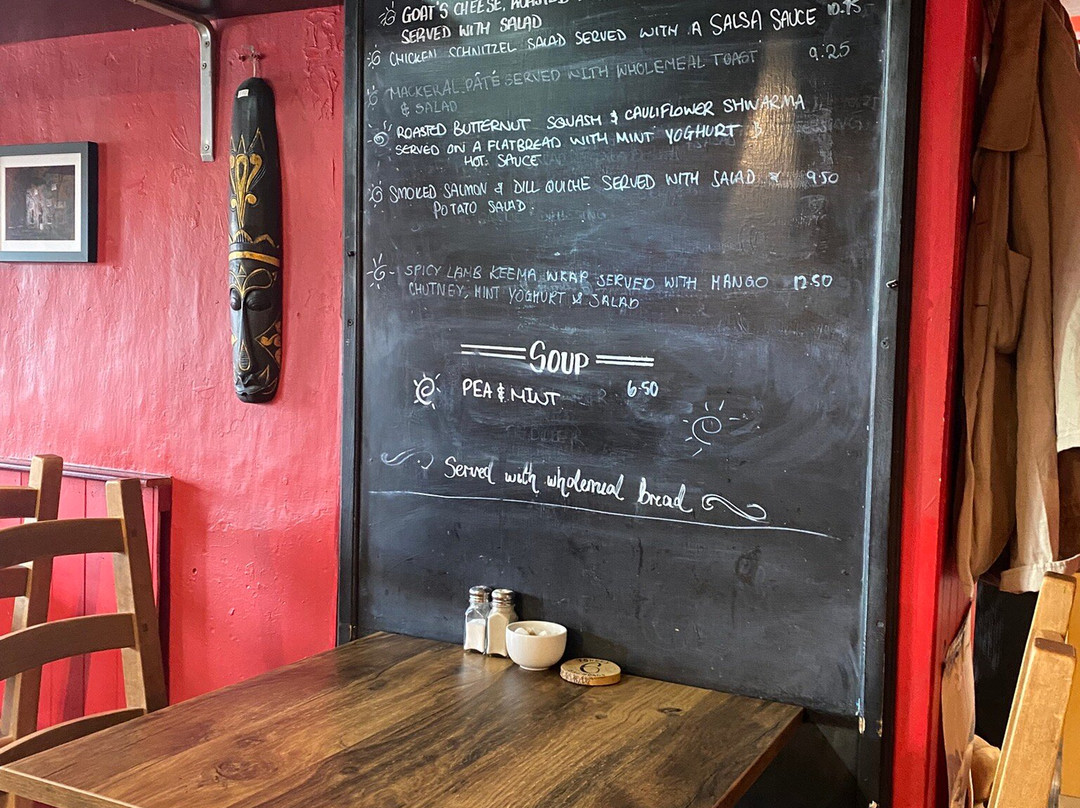 GOAT'S CHEESE, ROASTED
SERVED WITH SALAD
CHICKEN SCHNITZEL SALAD SERVED WITH A SALSA SAUCE 10.75
MACKERAL PÂTÉ SERVED WITH WHOLEMEAL TOAST 9.25
& SALAD
ROASTED BUTTERNUT SQUASH & CAULIFLOWER SHWARMA
SERVED ON A FLATBREAD WITH MINT YOGHURT &
HOT SAUCE
SMOKED SALMON & DILL QUICHE SERVED WITH SALAD & 9.50
POTATO SALAD.
SPICY LAMB KEEMA WRAP SERVED WITH MANGO 12.50
CHUTNEY, MINT YOGHURT & SALAD
SOUP
PEA & MINT 6.50
Served with wholemeal bread